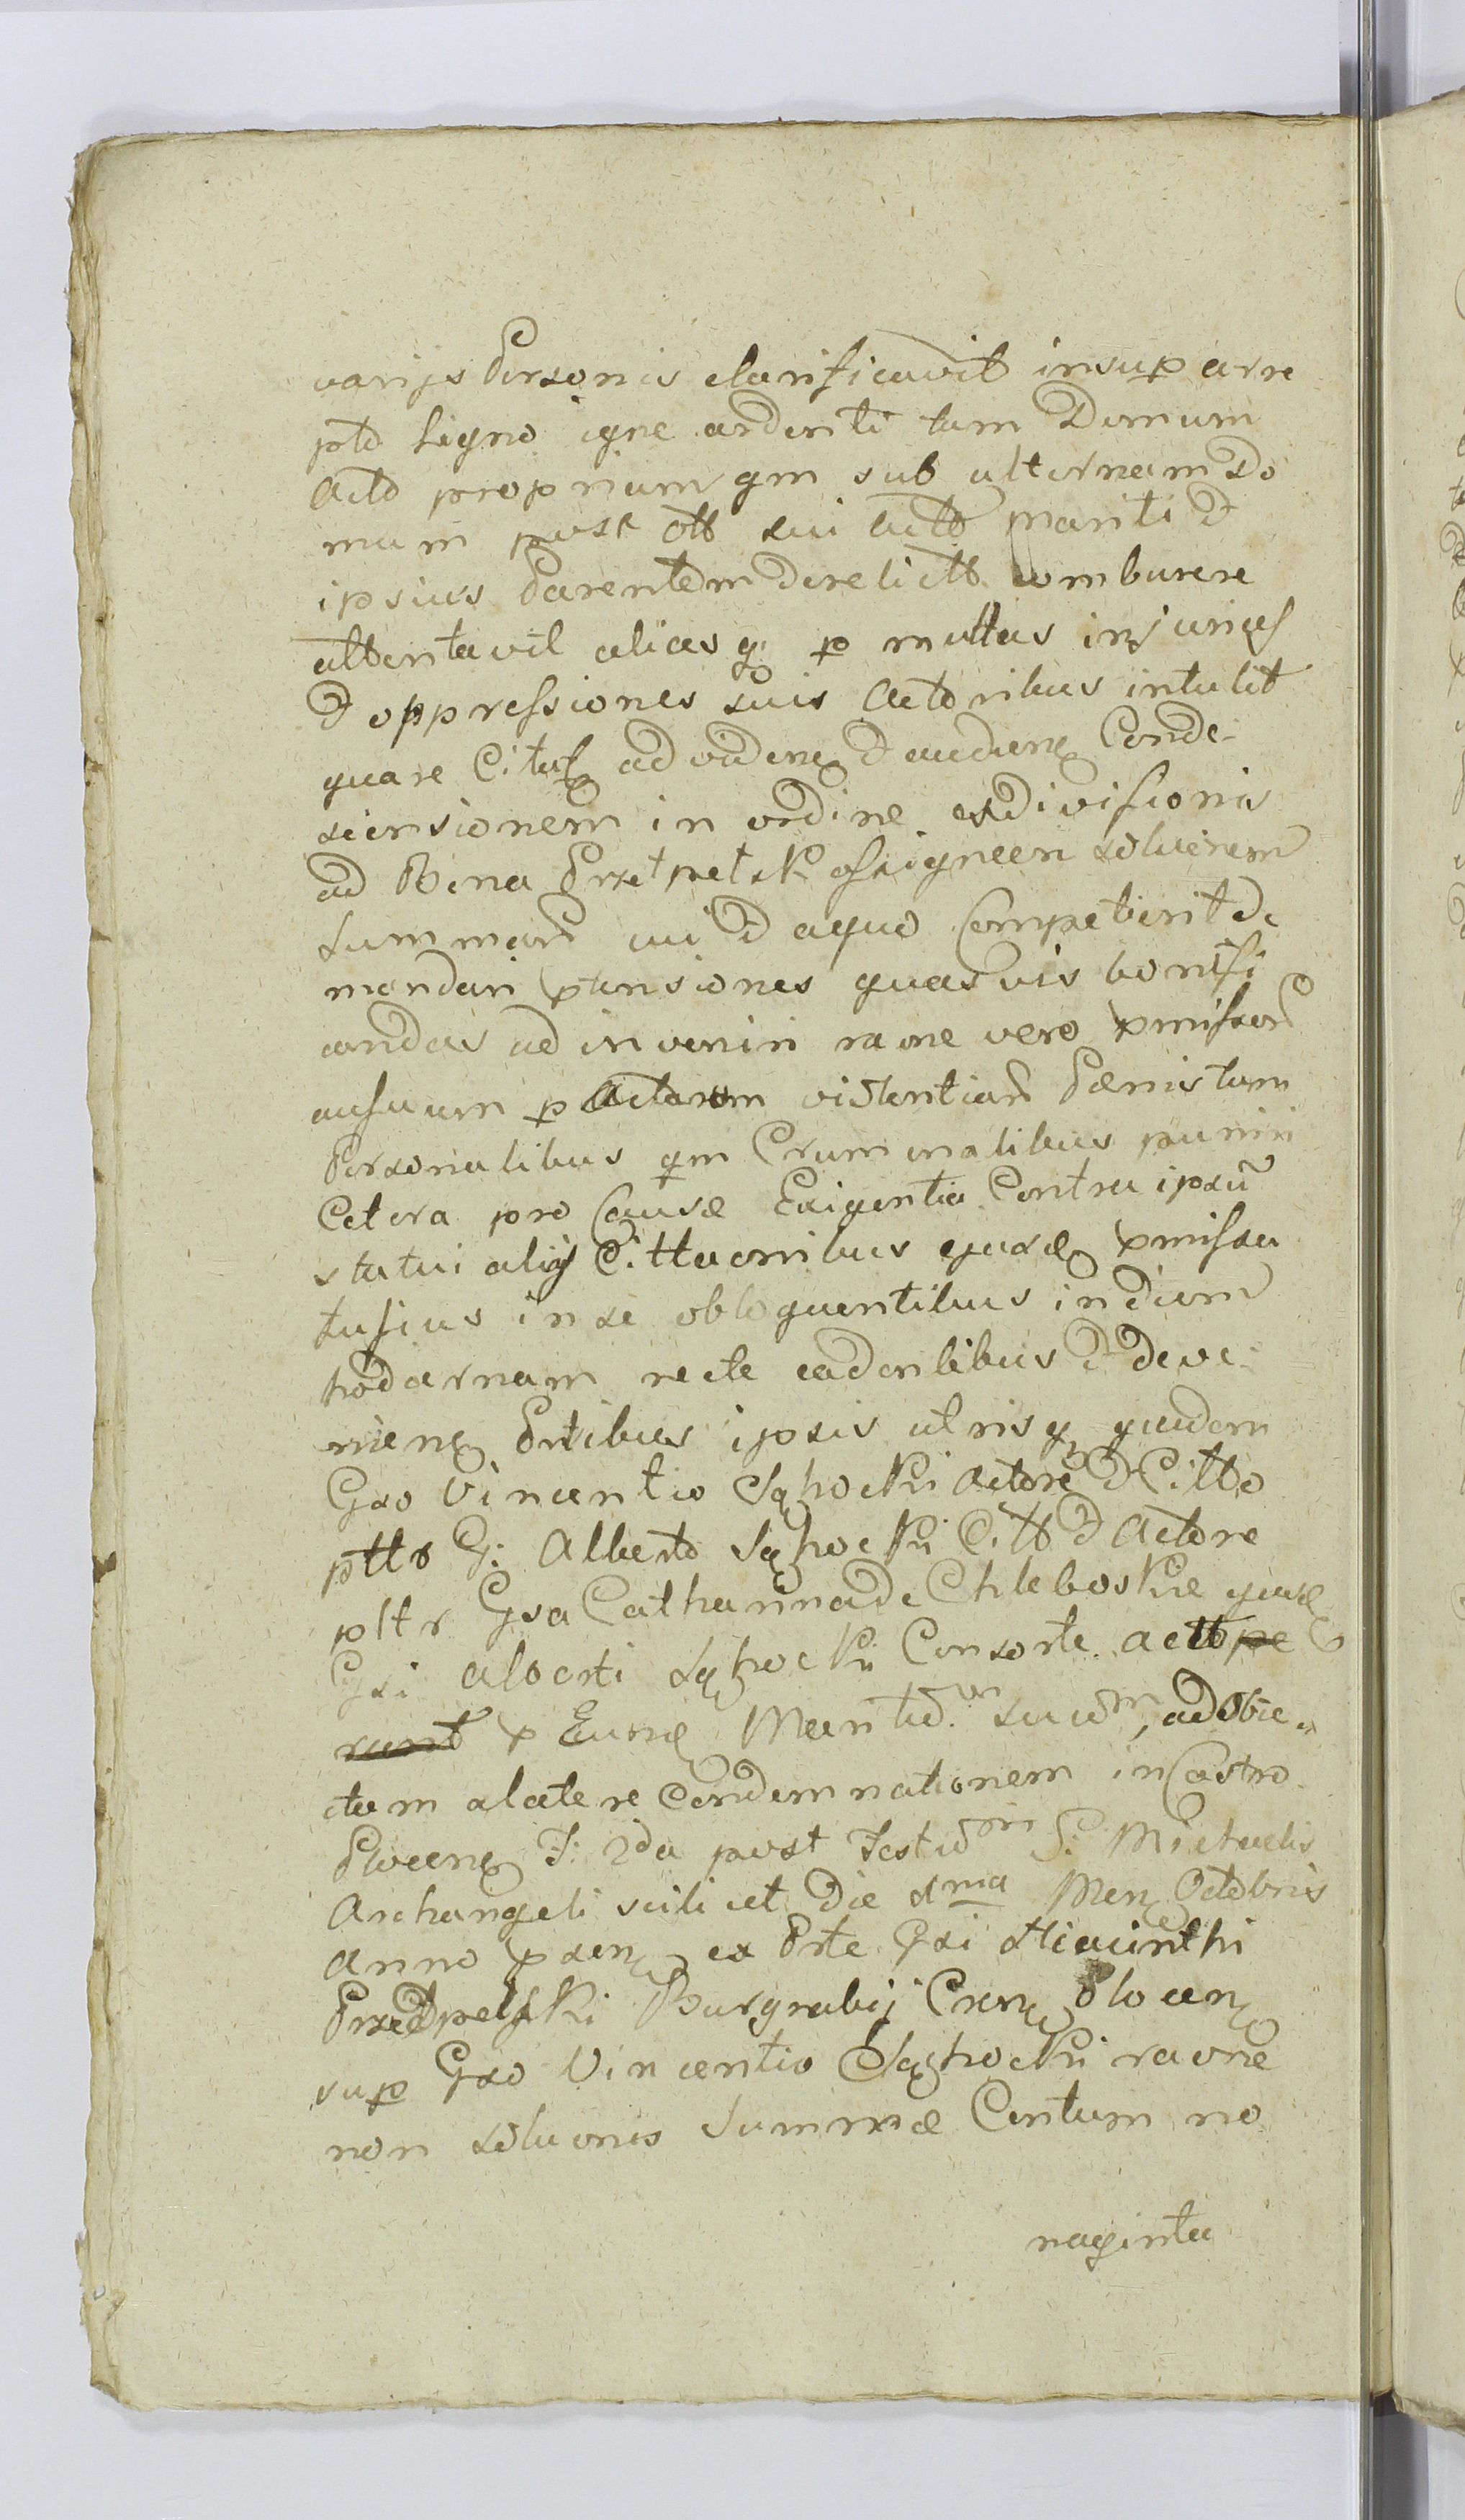 varijs Personis clarificavit insup arre
pto Ligno igne ardenti tam Domum
Acto propriam qm sub alternam Do
mum post ott sui Actd Mariti et
ipsius Parentem derelictt comburere
attentavit aliasq p multas injurias
et oppressiones suis Actoribus intulit
quare Cittus ad viden et audien Conde-
scensionem in ordine exdivisionis
ad Bona
Summam cui de aquo Competierit de
mandari ptensiones quasvis bonifi
candas ad inveniri raone vero pmissor
ausuum p Actorem violentiam Paenis tam
Personalibus qm Criminalibus puniri
Cetera pro Causae Exigentia Contra ipsu
statui alijs Cittaonibus quae pmissa
fusius in se obloquentibus in diem
hodiernam recte cadentibus et deve-
nien Ptibus ipsis utrisq quidem
Gso Vincentio Sąhocki Actore et Citto
pttr G: Alberto Sąhocki Citt et Actore
pttr Gsa Catharinna de Chleboskie
Gsi Alberti Sąhocki Consorte
p Eund Maritum suum, ad Obie-
ctam alatere Condemnationem in Castro
Plocen F: 2da post Festum S: Michaelis
Archangeli scilicet Die ma Men Octobris
Anno psen ex Pte Gsi Hiacinthi
Przedpelski Burgrabij Cren Plocen
sup Gso Vincentio Sąhocki raone
non soluonis Summae Centum no
naginta